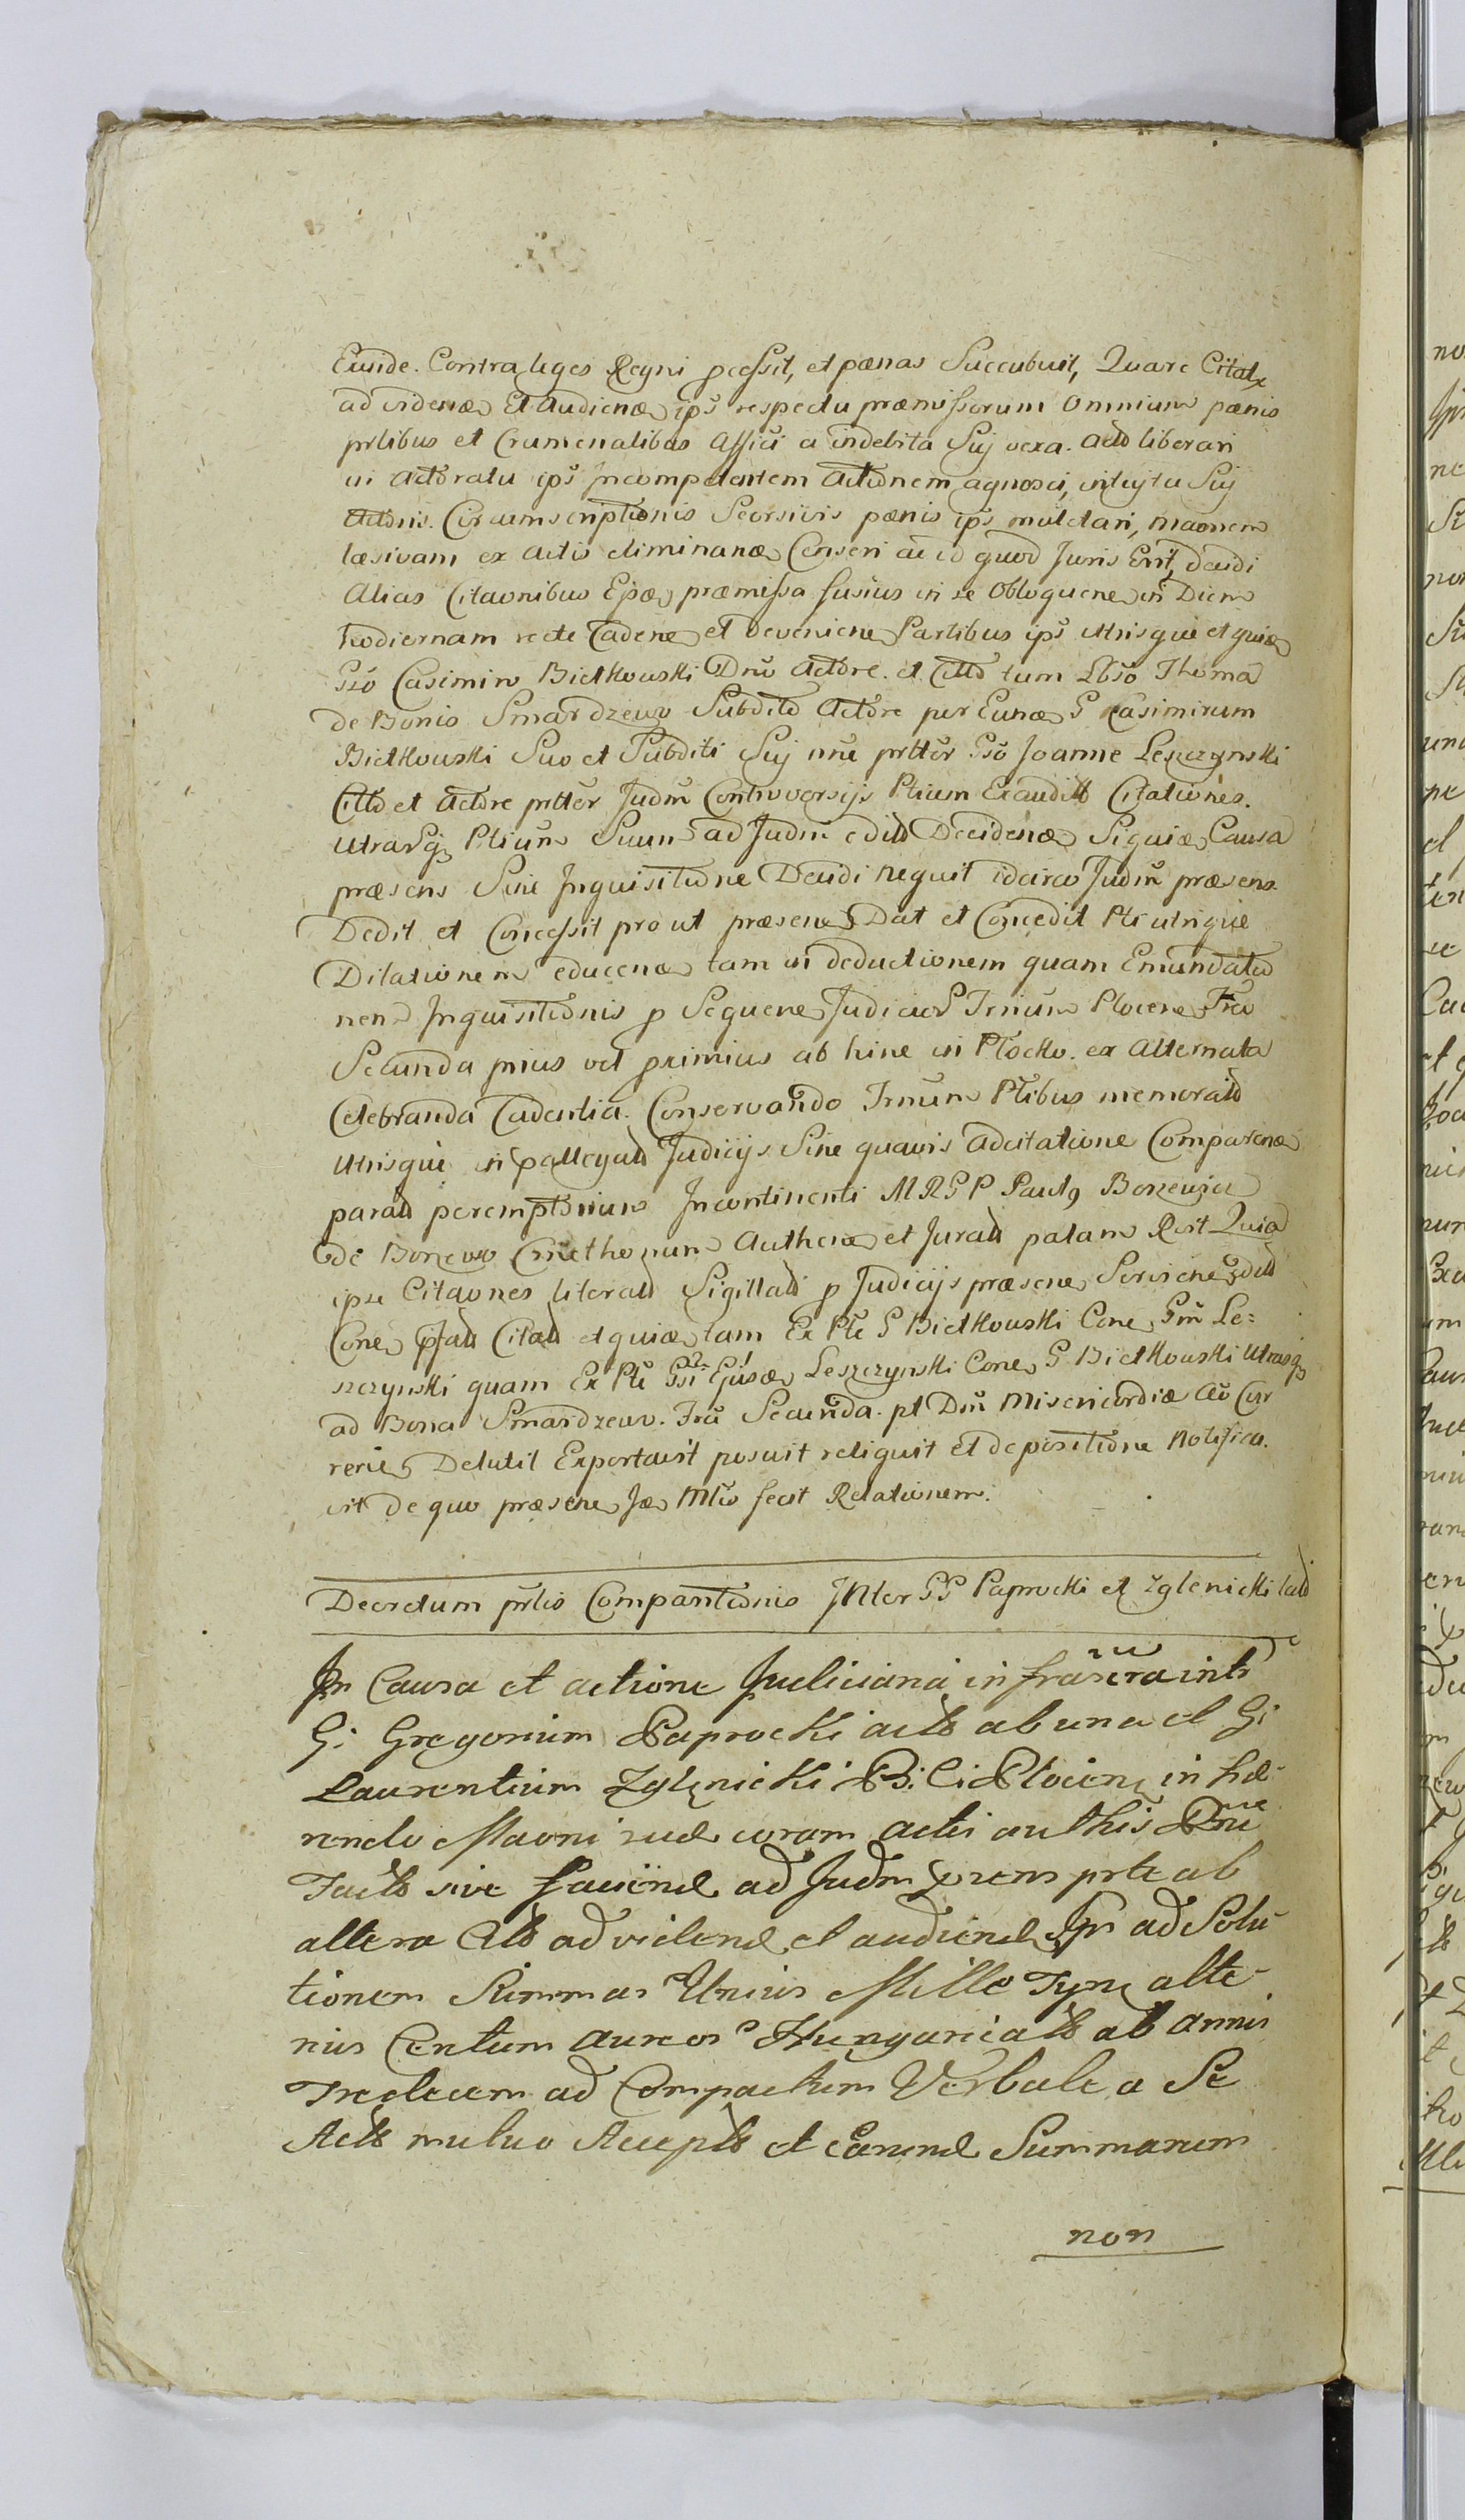 Eunde. Contra leges Regni pcessit, et pœnas Succubuit, Quare Citatr
ad videnæ Et Audienæ ips respectu præmissorum Omnium pœnis
prlibus et Crumenalibus Affici a indebita Sui vexa. Actõ liberari
in Actõratu ips Incompetentem Actiõnem agnosci, intuytu Sui
Actõnis. Circumscriptiõnis Seorsivis pœnis ips mulctari, maonem
læsivam ex Actis eliminanæ Censeri ac id quod Juris Erit, decidi
Alias Citaonibus Ejsæ præmissa fusius in se Obloquene in Diem
hodiernam recte Cadene et Deveniene Partibus ips utrisque et quiæ
Gso Casimiro Bietkowski Dno Actõre. et Cittõ tum Lbso Thoma
de Bonis Smardzewo Subditõ Actõre per Eunæ G Casimirum
Bietkowski Suo et Subditi Sui nne prttõr Gso Joanne Leszczynski
Cittõ et Actõre prttõr Judm Controversijs Ptium Exauditt Citationes.
Utrasq Ptium Suum ad Judm edittõ Decidenæ Siquiæ Causa
præsens Sine Inquisitiõne Decidi nequit idcirco Judm præsens
Dedit et Concessit pro ut præsene Dat et Concedit Pti utrique
Dilationem educenæ tam in deductionem quam Emundatiõ
nem Inquisitiõnis p Sequene Judicior Trnum Plocene Fria
Secunda prius vel primius ab hine in Płocko. ex Alternata
Celebranda Cadentia. Conservando Trnum Ptibus memoratõ
Utrisque in pallegatt Judicijs Sine quavis Adcitatione Comparenæ
paratt peremptõrium Incontinenti MRGP Paulq Borzewski
de Borzewo Cmethonum Authenæ et Juratt palam Rcit Quia
ipse Citaones literatt Sigillatt p Judicijs præsene Serviene edittõ
Cone pfatt Citatt et quiæ tam Ex Pte G Bietkowski Cone Gm Le=
szczynski quam Ex Pte Gsi Ejusæ Leszczynski Cone G Bietkowski Utrasq
ad Bona Smardzewo. Fria Secunda. pt Dm Misericordiæ Aõ Cur
rene Detulit Exportavit posuit reliquit et depositiõne Notifica.
vit de quo præsene Jæ Mtio fecit Relationem.
Decretum prlis Comparitiõnis Inter GG Paprocki et Zglenicki latt
In Causa et actione Judiciaria infrascra intr
G: Gregorium Paprocki actt ab una et G:
Laurentium Zglenicki B: C: Plocien in hæ-
rendo Maoni sud coram actis authis Pne
Factt sive faciend ad Judm prsens prte ab
altera Citt ad vidend et audiend Ips ad Solu-
tionem Summar Unius Mille Tynf alte-
rius Centum aureor Hungaricalt ab annis
Tredecem ad Compactum Verbale a Se
Actt mutuo Accepts et earund Summarum
non